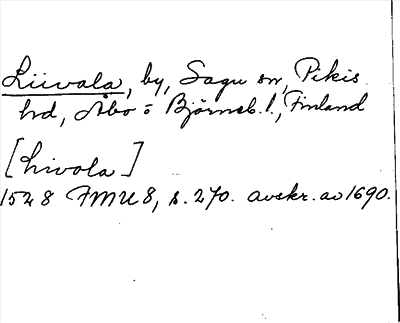 Liivala, by, Sagu sn, Pikis
hd, Åbo o Björneb. l., Finland
[Livola]
1528 FMU 8, s. 270. avskr. av 1690.